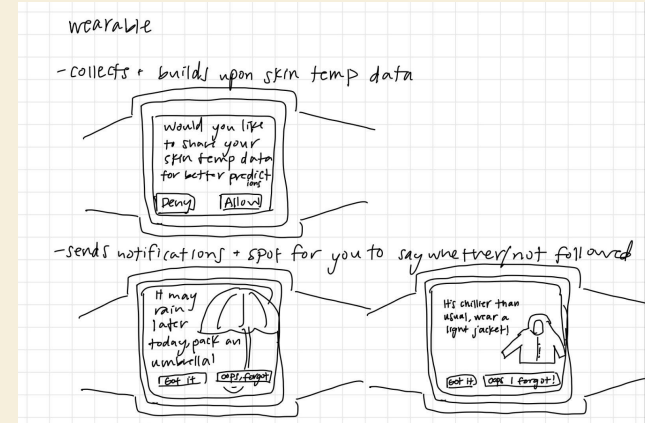 wearable
- collects + builds upon skin temp data
would you like
to share your
skin temp data
for better predict
ions
Deny Allow
- sends notifications + spot for you to say whether/not followed
It may
rain
later
today, pack an
umbrella!
Got it oops, forgot
It's chillier than
usual, wear a
light jacket!
Got it oops I forgot!